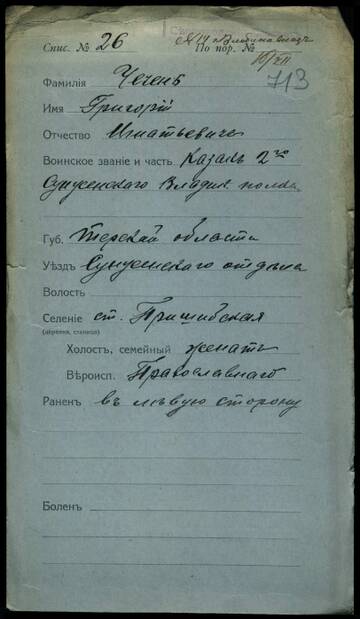 Спис. № 26 По пор. №
16/XII
713
Фамилія Чеченъ
Имя Григорій
Отчество Игнатьевичъ
Воинское званіе и часть Казакъ 2го
Сунженскаго Владик. полка
Губ. Терской области
Уѣздъ Сунженскаго отдѣла
Волость
Селеніе ст. Пришибская
(деревня, станица)
Холостъ, семейный женатъ
Вѣроисп. Православнаго
Раненъ въ лѣвую сторону
Боленъ